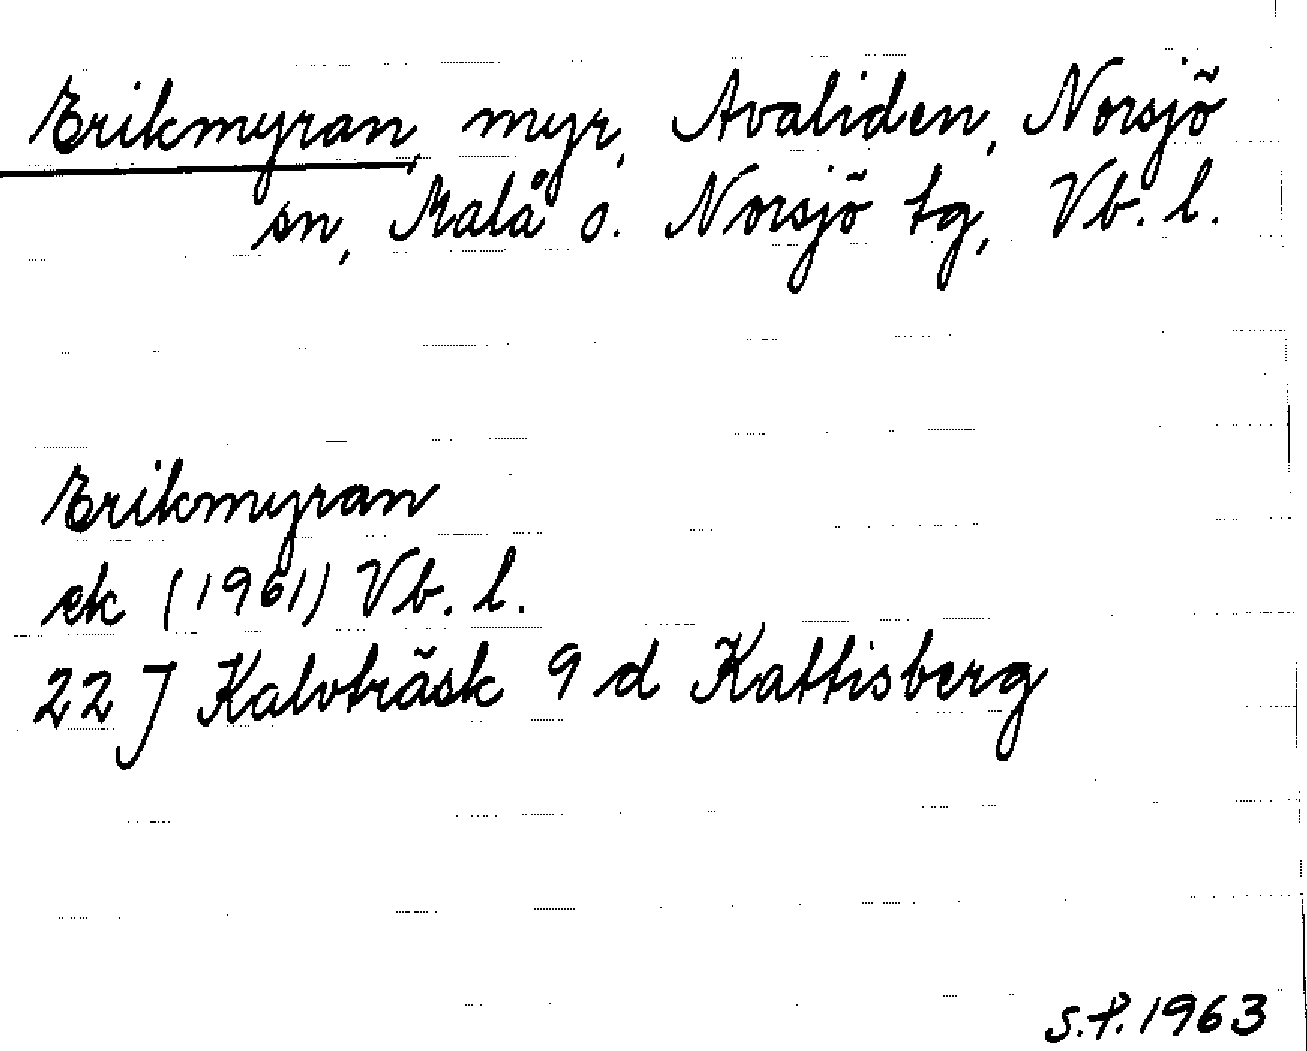 Erikmyran, myr, Avaliden, Norsjö
sn, Malå o. Norsjö tg, Vb. l.
Erikmyran
ek (1961) Vb. l.
22 J Kalvträsk 9 d Kattisberg
S.P. 1963